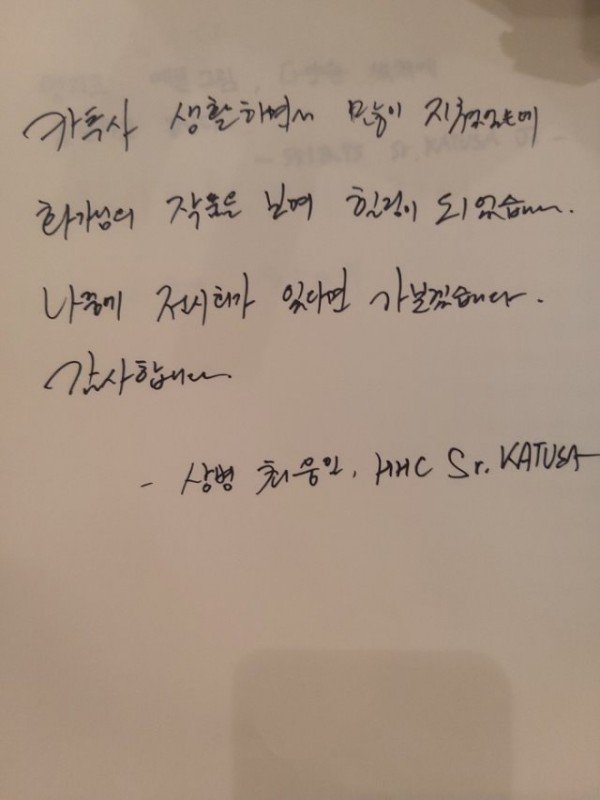 카투사 생활하면서 많이 지쳤었는데
화가님의 작품을 보며 힐링이 되었습니다.
나중에 전시회가 있다면 가보겠습니다.
감사합니다.
- 상병 최웅인, HHC Sr. KATUSA